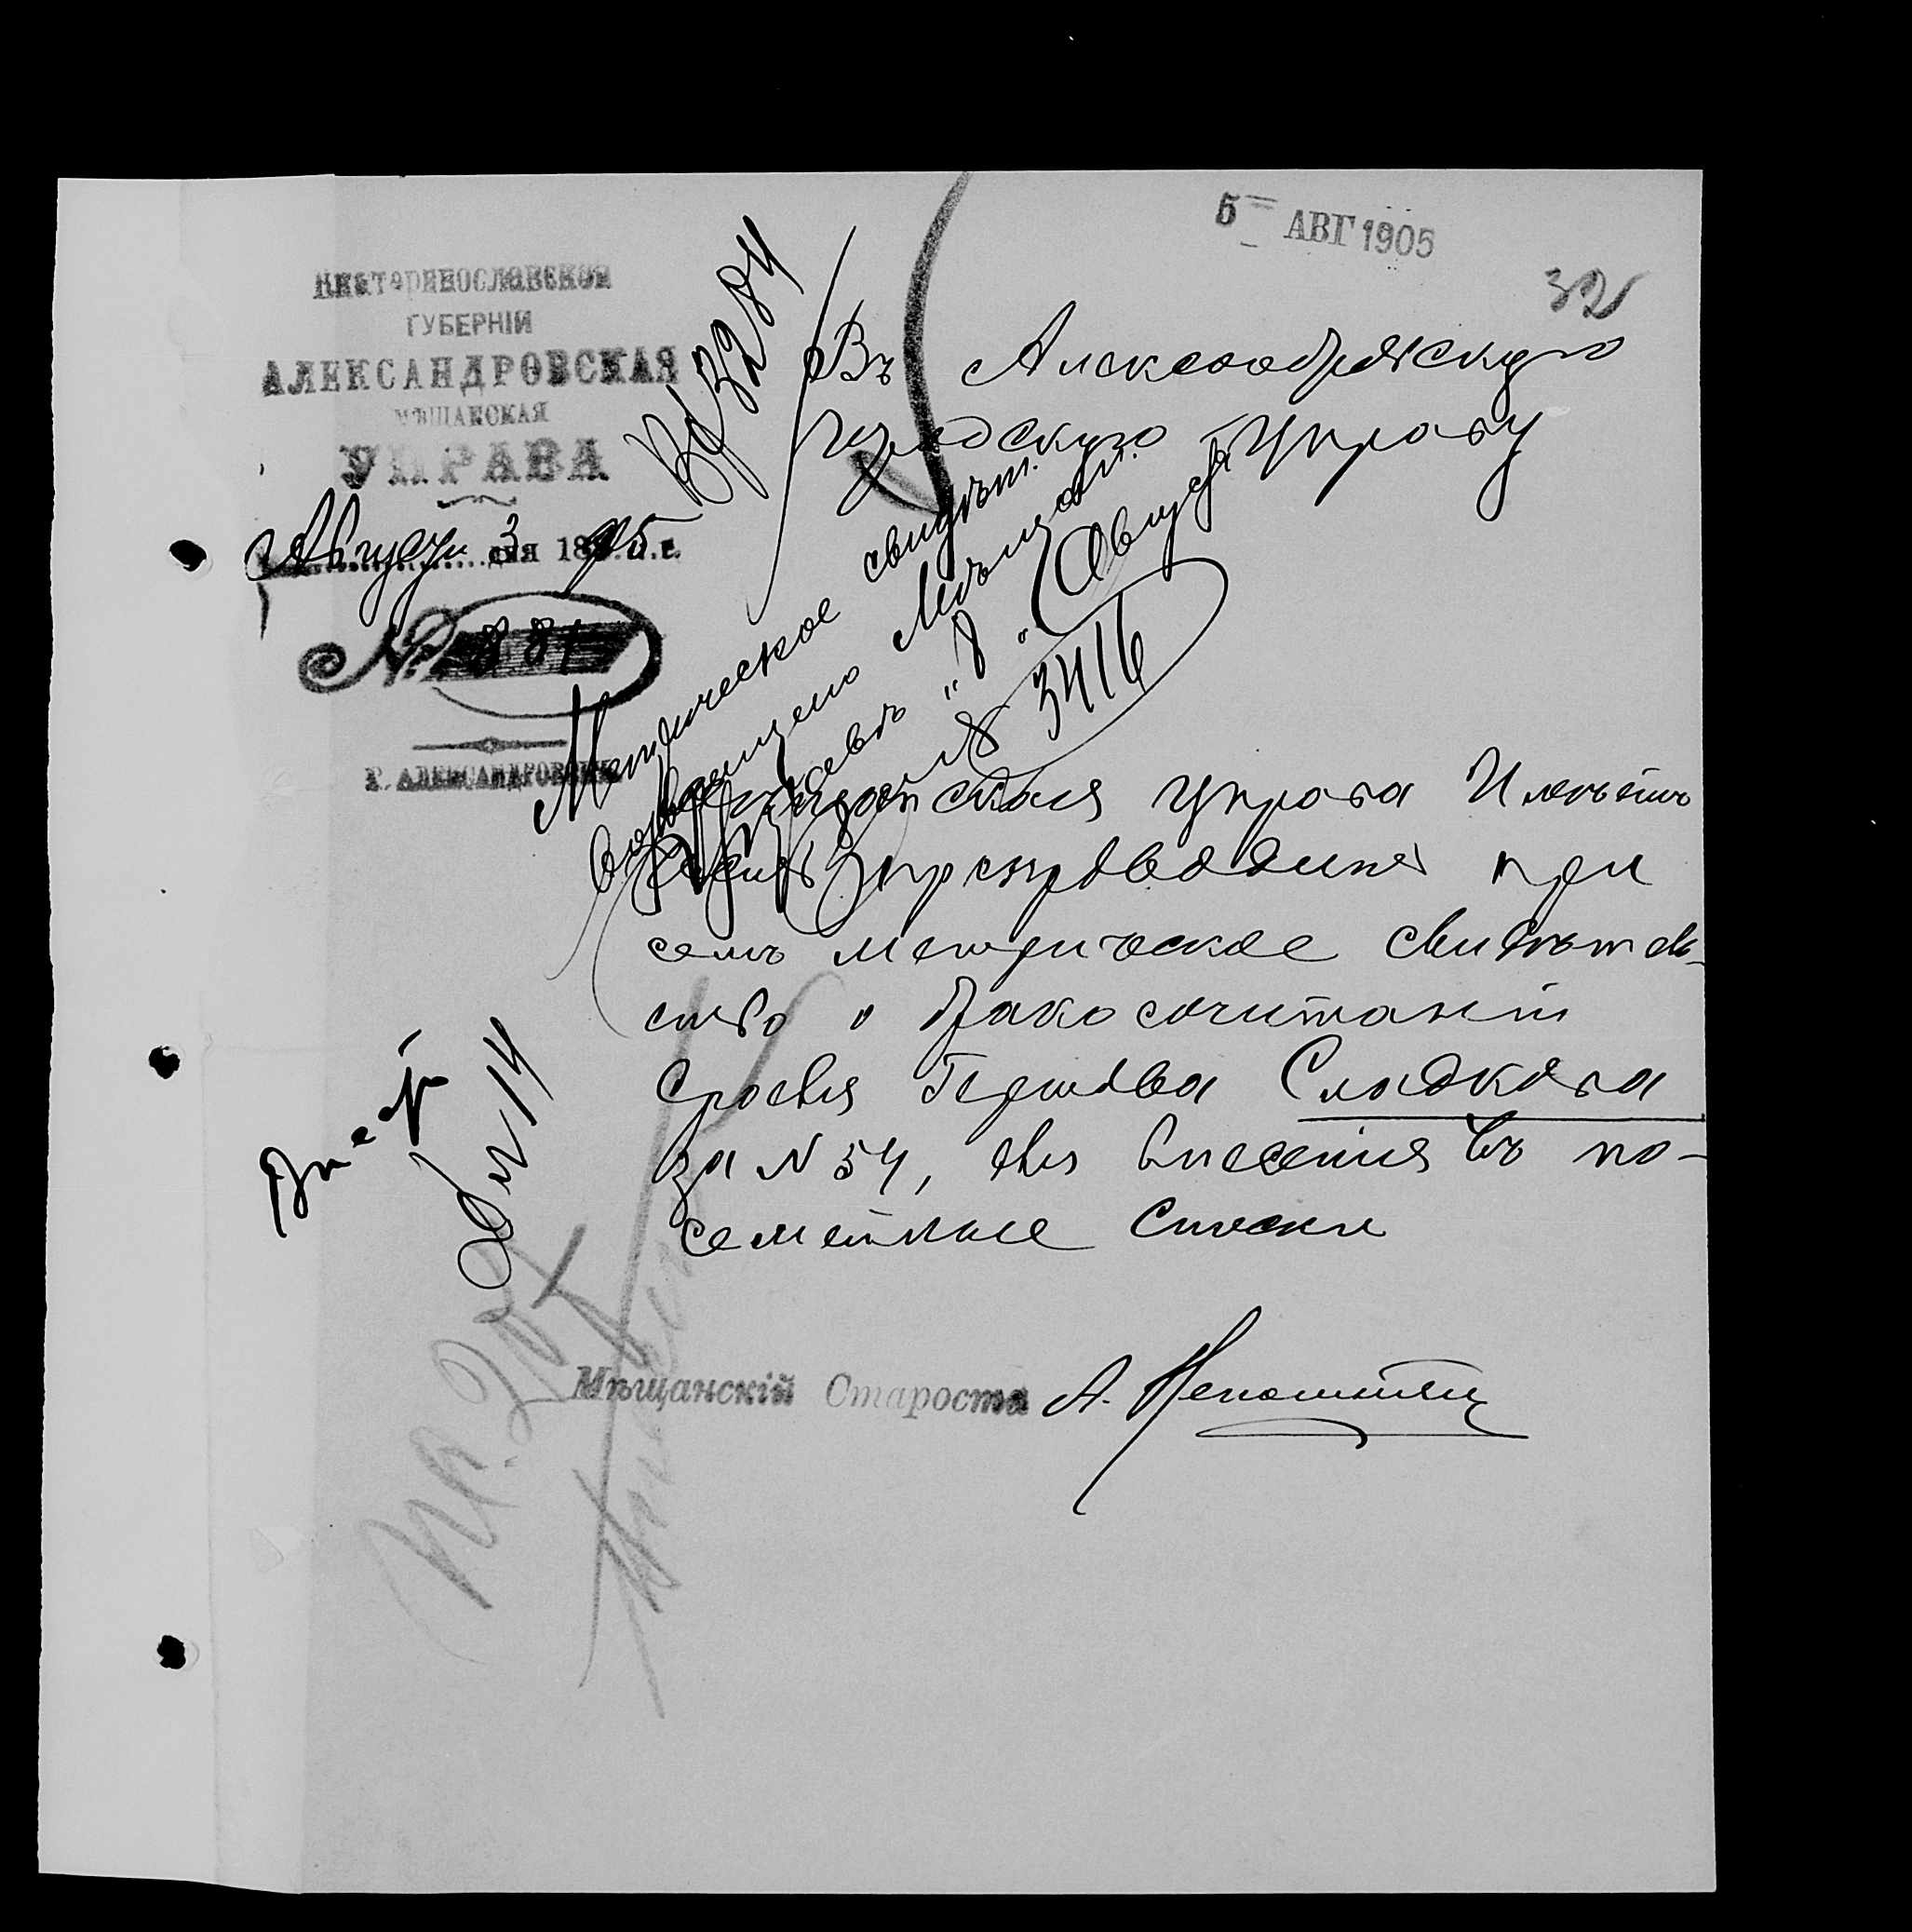 5 АВГ 1905
32
ЕКАТЕРИНОСЛАВСКОЙ
ГУБЕРНІИ
АЛЕКСАНДРОВСКАЯ
МѢЩАНСКАЯ
УПРАВА
Августа 3 дня 1905 г.
№ 881
Г. АЛЕКСАНДРОВСКЪ
Вх 3284
Въ Александровскую
Городскую Управу
Метрическое свидѣт.
возвращено Мѣщан.
"8" Августа
№ 3416
Мѣщанская Управа Имѣетъ
честь препроводить при
семъ метрическое свидѣтель-
ство о бракосочитаніи
Сроеля Гершова Сладкова
за № 54, для внесенія въ по-
семейные списки
Мѣщанскій Староста А.